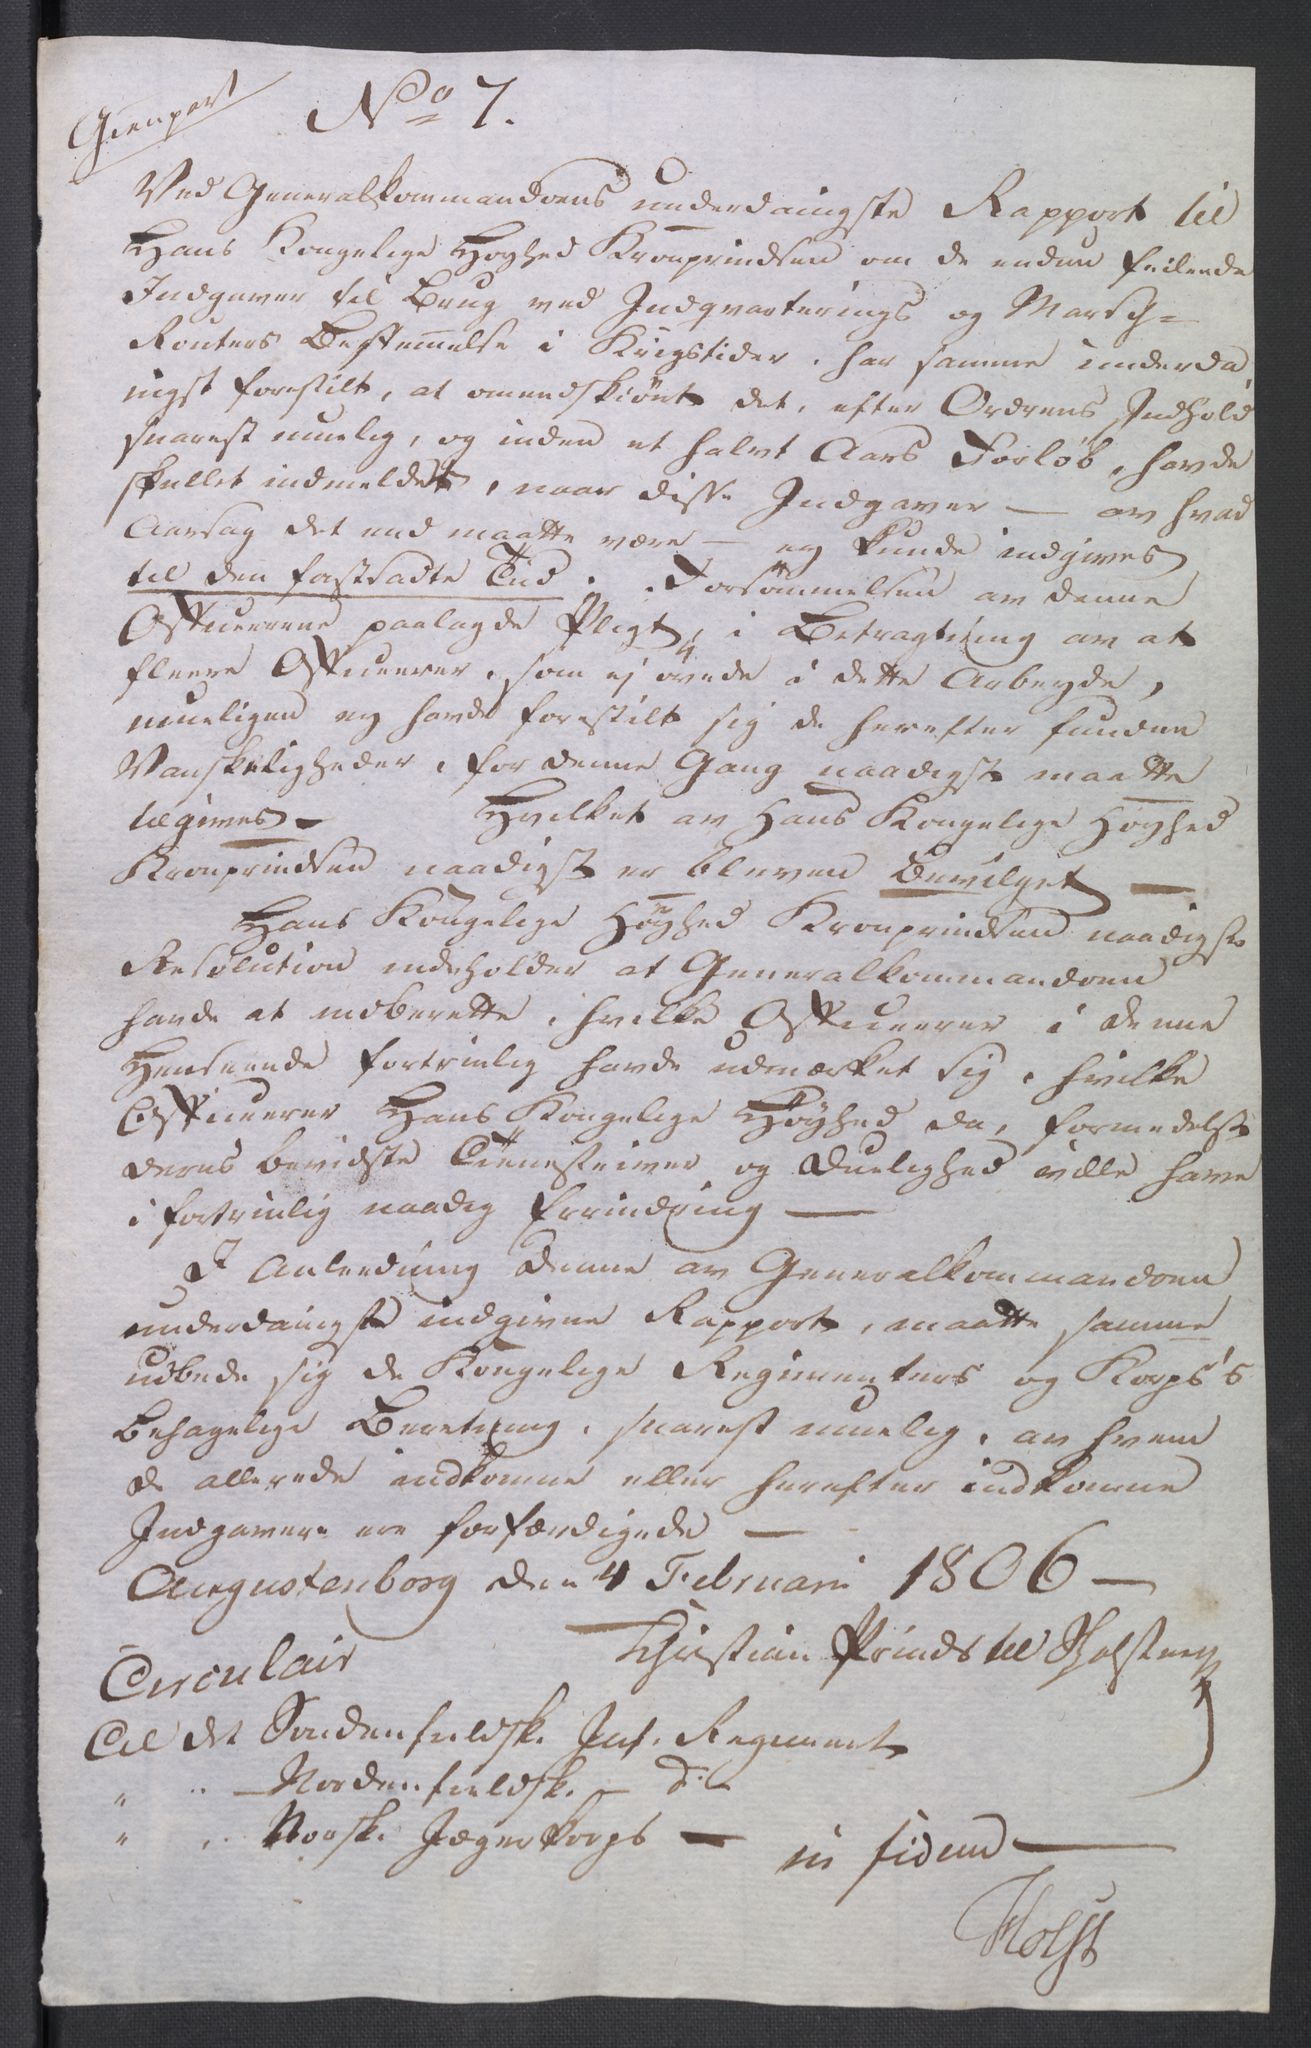 Gienpart
No 7.
Ved Generalkommandoens underdanigste Rapport til
Hans Kongelige Høyhed Kronprindsen om de endnu feilende
Indgaver til Brug ved Indqvarterings og Marsch=
Routers Bestemmelse i Krigstider, har samme underda,
nigst forestilt, at omendskiönt det, efter Ordrens Indhold
snarest muelig, og inden et halvt Aars Forløb, havde
skullet indmeldes, naar disse Indgaver — av hvad
Aarsag det end maatte være — ey kunde indgives
til den fastsadte Tiid, Forsömmelsen av denne
Officererne paalagde Pligt, i Betragtning av at
fleere Officerer, som ej övede i dette Arbeyde,
mueligen ey havde forestilt sig de herefter fundne
Vanskeligheder, for denne Gang naadigst maatte
tilgives — Hvilket av Hans Kongelige Høyhed
Kronprindsen naadigst er bleven bevilget —
Hans Kongelige Höyhed Kronprindsens naadigste
Resolution indeholder at Generalkommandoen
havde at indberette, hvilke Officerer i denne
Henseende fortrinlig havde udmærket sig, hvilke
Officerer Hans Kongelige Höyhed da, formedelst
deres beviidste Tienesteiver og Duelighed vilde have
i fortrinlig naadig Erindring —
I Anledning denne av Generalkommandoen
underdanigst indgivne Rapport, maatte samme
udbede sig de Kongelige Regimenters og Korps's
behagelige Beretning, snarest muelig, av hvem
de allerede indkomne eller herefter indkomne
Indgaver ere forfærdigede —
Augustenborg den 4 Februarii 1806 —
Christian Prinds til Holsteen
Circulair
Til det Søndenfieldsk. Inf. Regiment
" " — Nordenfieldsk. — do —
" " Norsk. Jægerkorps —
in fidem
Holst